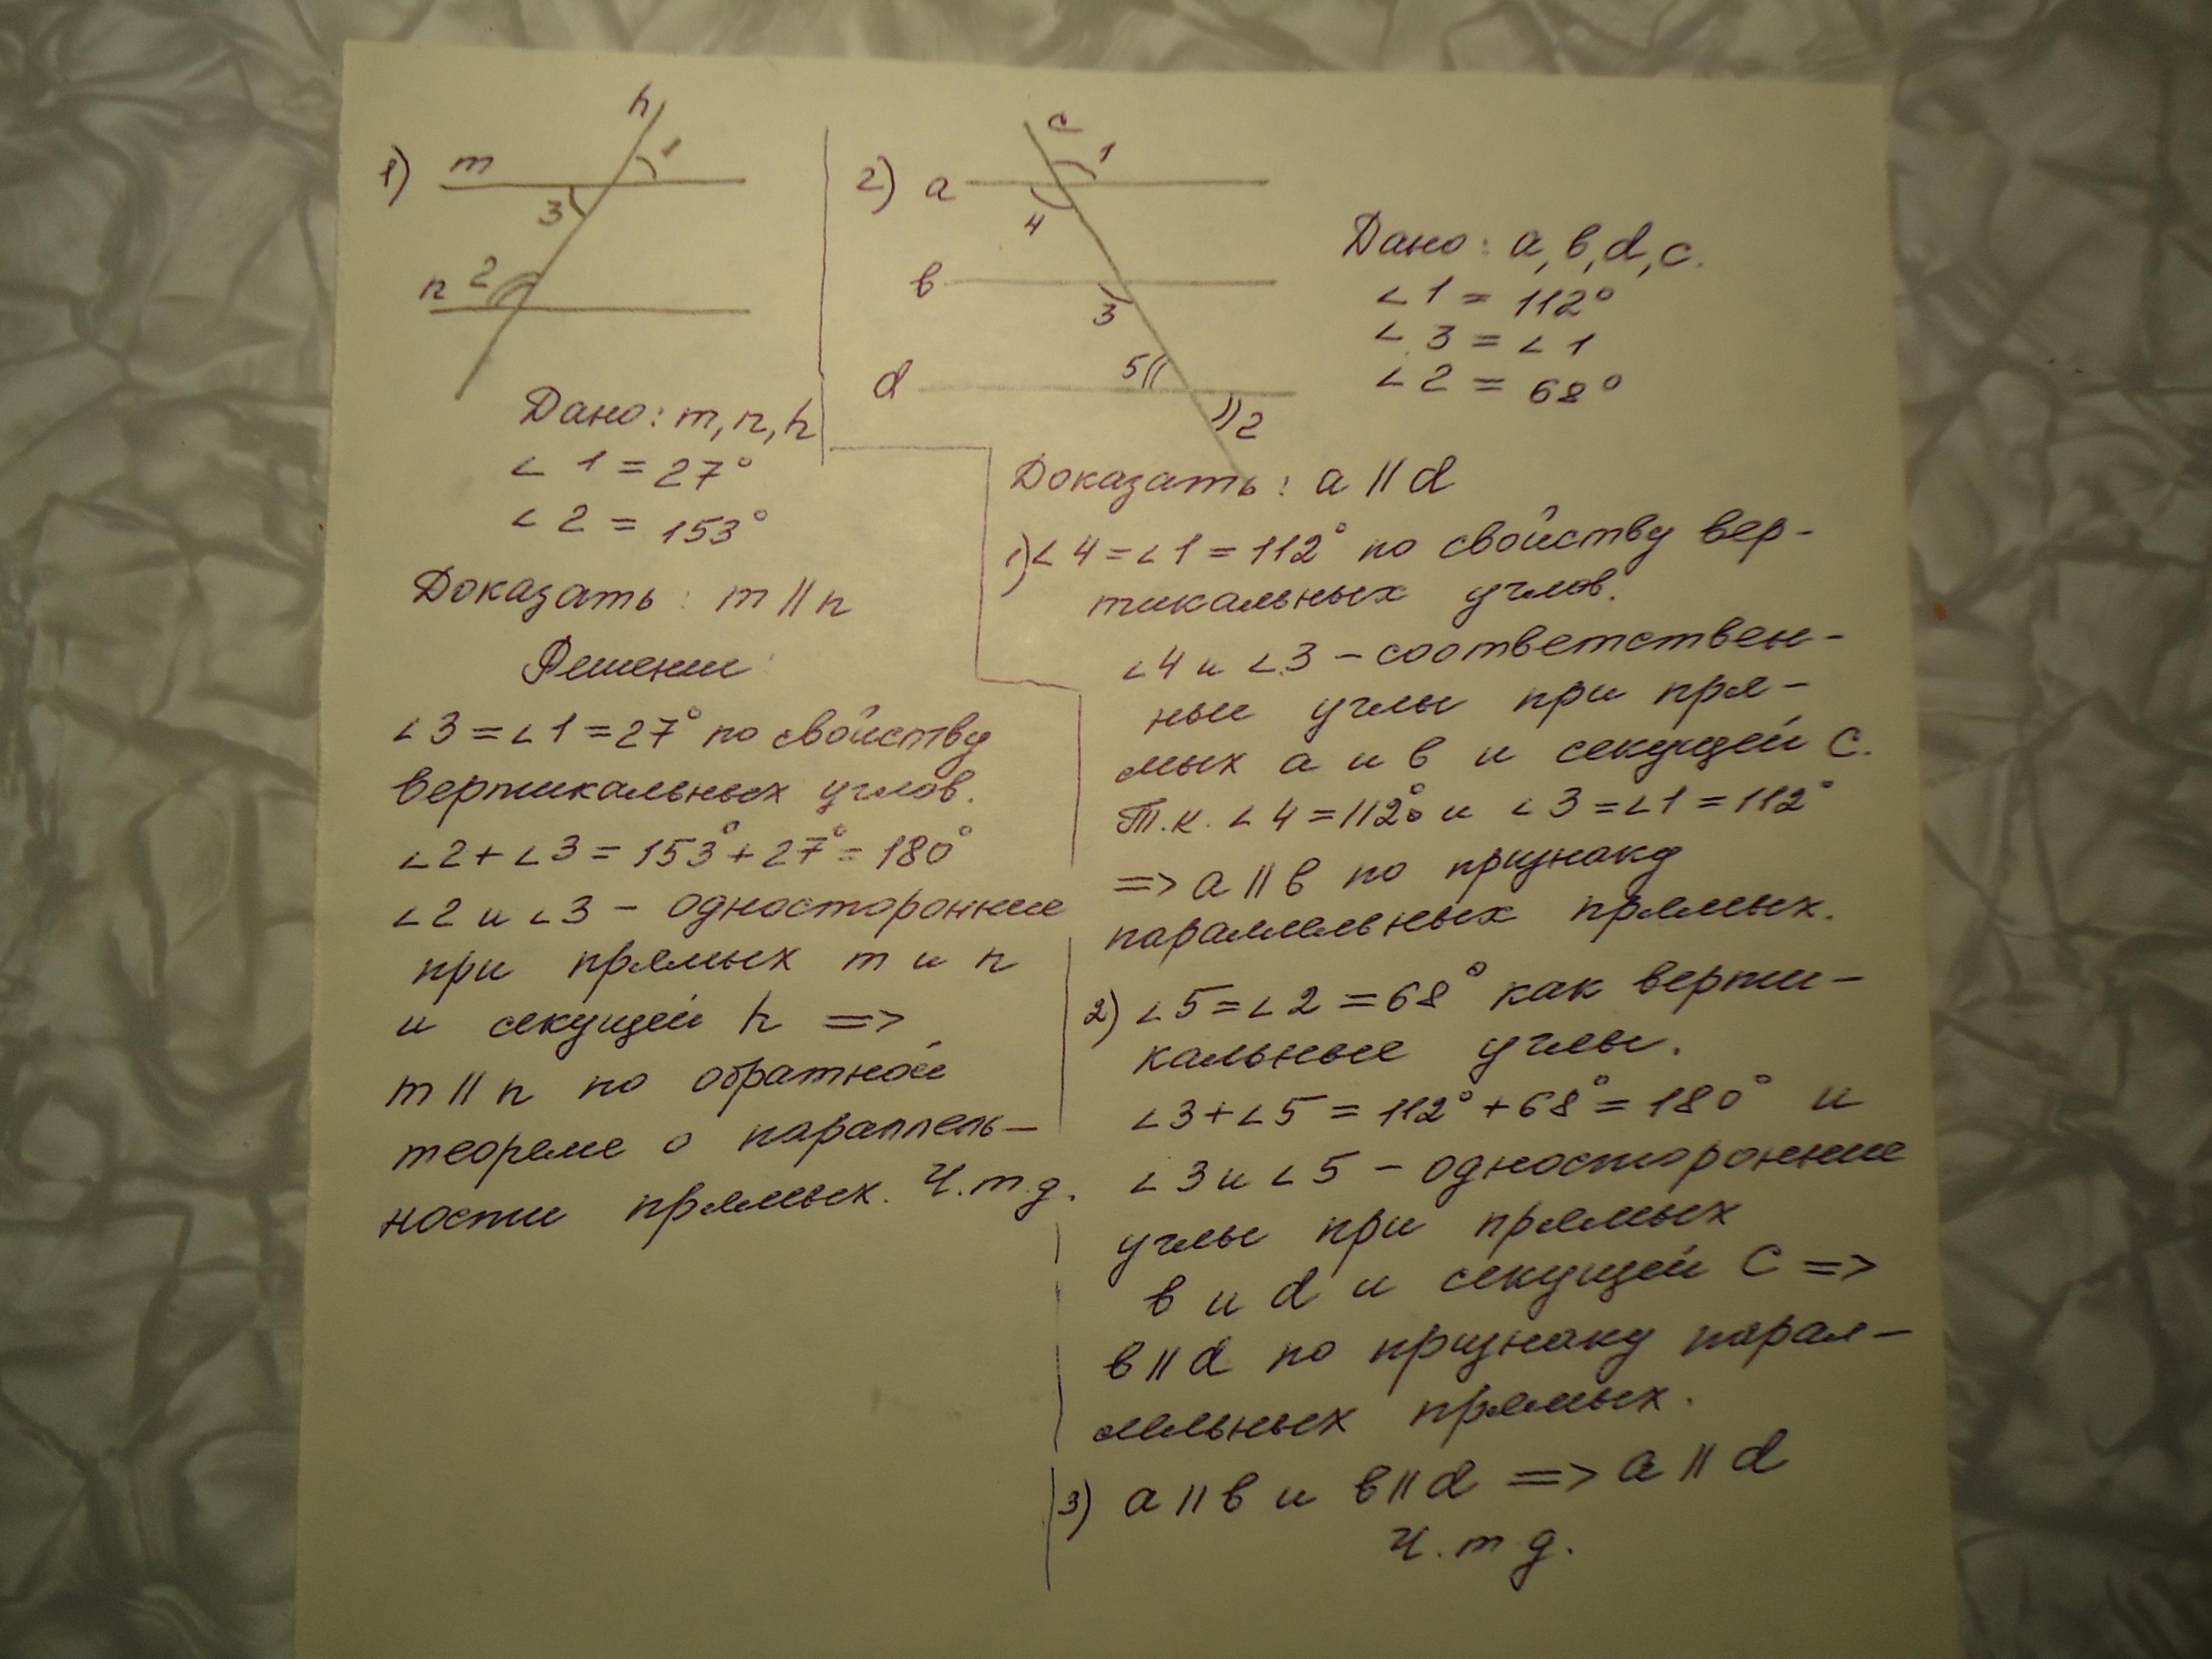 1)
m
h
1
3
n
2
Дано: m, n, h
∠1 = 27°
∠2 = 153°
Доказать: m || n
Решение:
∠3 = ∠1 = 27° по свойству
вертикальных углов.
∠2 + ∠3 = 153° + 27° = 180°
∠2 и ∠3 – односторонние
при прямых m и n
и секущей h =>
m || n по обратной
теореме о параллель-
ности прямых. Ч.т.д.
2)
a
c
1
4
в
3
d
5
2
Дано: a, в, d, c.
∠1 = 112°
∠3 = ∠1
∠2 = 68°
Доказать: a || d
1) ∠4 = ∠1 = 112° по свойству вер-
тикальных углов.
∠4 и ∠3 – соответствен-
ные углы при пря-
мых a и в и секущей c.
Т.к. ∠4 = 112° и ∠3 = ∠1 = 112°
=> a || в по признаку
параллельных прямых.
2) ∠5 = ∠2 = 68° как верти-
кальные углы.
∠3 + ∠5 = 112° + 68° = 180° и
∠3 и ∠5 – односторонние
углы при прямых
в и d и секущей c =>
в || d по признаку парал-
лельных прямых.
3) a || в и в || d => a || d
Ч.т.д.